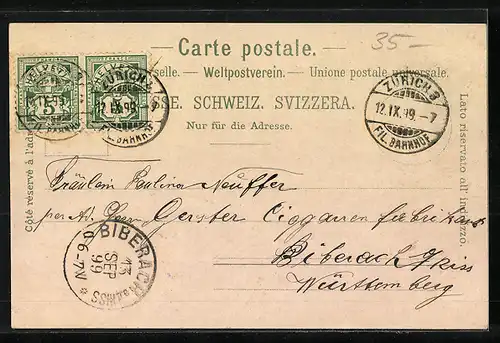 35-
Carte postale.
selle. — Weltpostverein. — Unione postale universale.
SSE. SCHWEIZ. SVIZZERA.
Nur für die Adresse.
Côté réservé à l'adr
Lato riservato all' indirizzo.
HELVETIA
5
ZÜRICH
12 IX 99 - 7
FIL. BAHNHOF
ZÜRICH 3
12. IX. 99. - 7
FIL. BAHNHOF
Fräulein Paulina Neuffer
per Ad. Herr Gerster Ciggarren fabrikant
Biberach a/Riss
Württemberg
BIBERACH a.d. RISS
13
SEP
99
6-7N